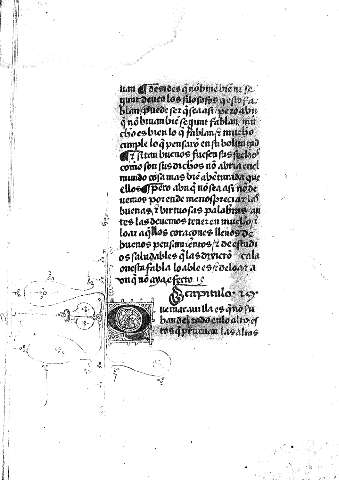 uan ¶ desides q̃ no biuē biē nẽ se
gunt deuen los filosofos q̃ esto fa
blan puede ser q̃ sea asi pero abn
q̃ nõ biuan biẽ segunt fablan mu
cho es bien lo q̃ fablan τ mucho
cunple lo q̃ pensarõ en su boluntad
¶ τ si tan buenos fuesen sus fechos
como son sus dichos nõ abria en el
mundo cosa mas biẽ abẽturada que
ellos ¶ pero abn q̃ nõ sea asi nõ de
uemos por ende menospreciar las
buenas τ virtuosas palabras an
tes las deuemos tener en mucho τ
loar aq̃llos coraçones llenos de
buenos pensamientos τ de estudi
os saludables q̃ las dixierõ ca la
onesta fabla loable es τ de loar a
vn q̃ nõ aya efecto
Capitulo
ue marauilla es q̃ nõ su
ban del todo en lo alto es
tos q̃ prueuan las altas